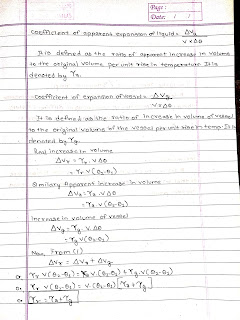 Page :
Date: / /
Coefficient of apparent expansion of liquid = ΔVa
V×Δθ
It is defined as the ratio of apparent increase in volume
to the original volume per unit rise in temperature. It is
denoted by γa.
Coefficient of expansion of vessel = ΔVg
V×Δθ
It is defined as the ratio of increase in volume of vessel
to the original volume of the vessel per unit rise in temp. It is
denoted by γg.
Real increase in volume
ΔVr = γr. V Δθ
= γr V(θ2-θ1)
Similarly Apparent increase in volume
ΔVa = γa .V Δθ
= γa V(θ2-θ1)
Increase in volume of vessel
ΔVg = γg. V. Δθ
= γg V(θ2-θ1)
Now, From (1)
ΔVr = ΔVa + ΔVg
or γr V (θ2-θ1) = γa V.(θ2-θ1) + γg.V.(θ2-θ1)
or γr V (θ2-θ1) = V.(θ2-θ1) [γa + γg]
or γr = γa + γg